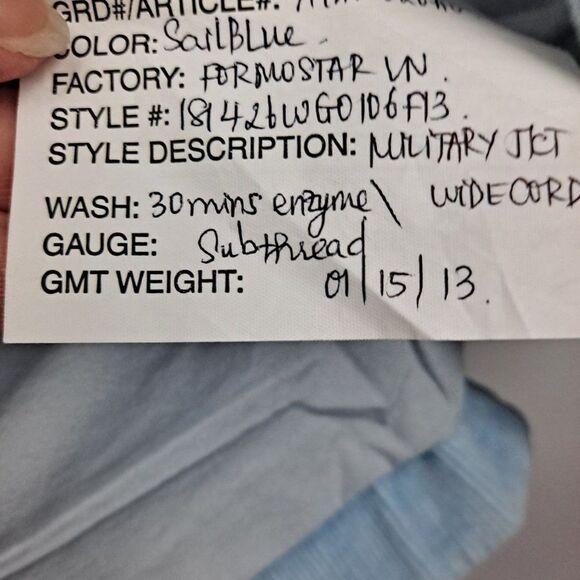 GRD#/ARTICLE#:
COLOR: SailBlue.
FACTORY: FORMOSTAR VN.
STYLE #: 181426WG0106F13.
STYLE DESCRIPTION: MILITARY JCT
WASH: 30mins enzyme\ WIDECORD
GAUGE: Subthread
GMT WEIGHT: 01/15/13.